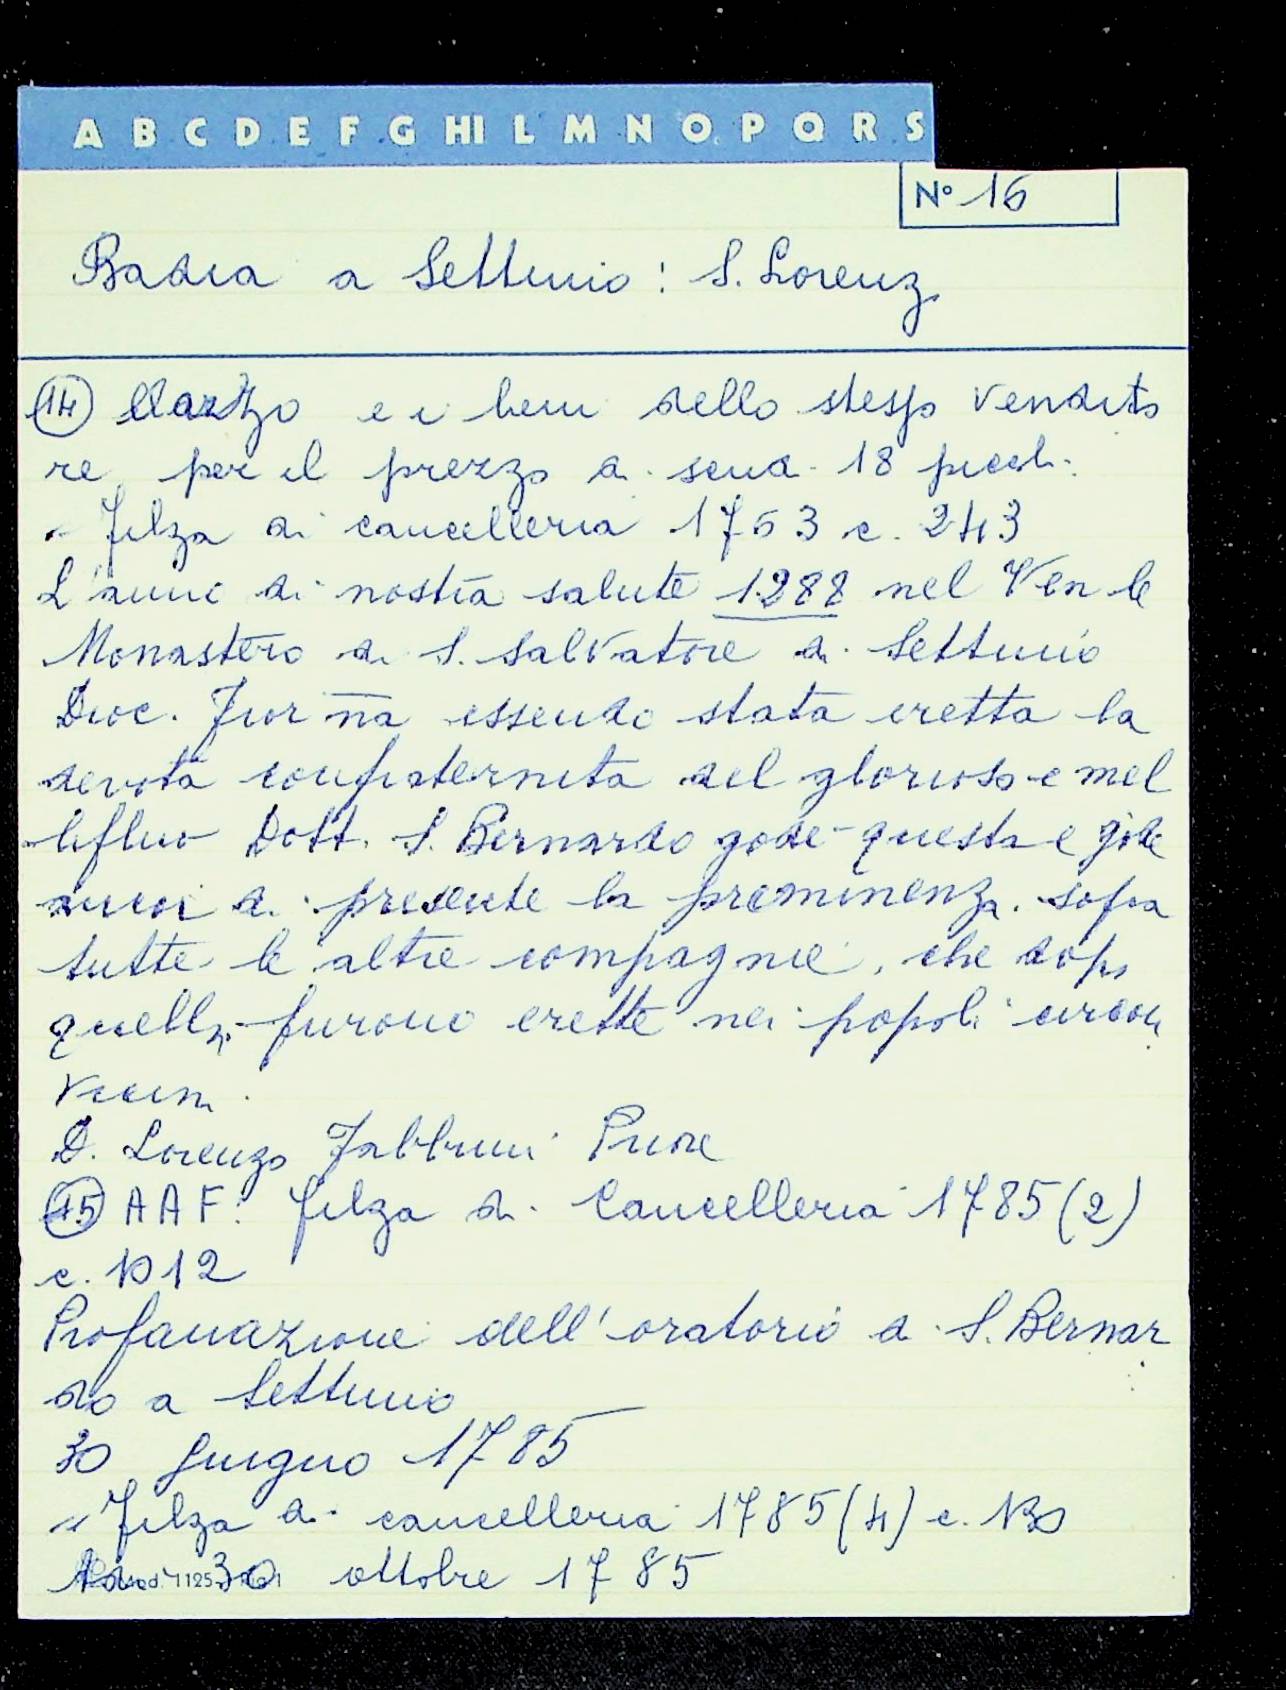 A B C D E F G HI L M N O P Q R S
N° 16
Badia a Settimo: S. Lorenzo
(14) Marzo e i beni dello stesso vendito
re per il prezzo di scudi 18 piccoli.
" Filza di cancelleria 1763 c. 243
L'anno di nostra salute 1288 nel Ven le
Monastero di S. Salvatore di Settimo
Dioc. Fior na essendo stata eretta la
devota confraternita del glorioso e mel
lifluo Dott. S. Bernardo gode questa e gode
ancor di presente la preminenza sopra
tutte le altre compagnie, che dopo
quella furono erette nei popoli circon
vicini.
D. Lorenzo Fabbrini Priore
(15) AAF: filza di Cancelleria 1785 (2)
c. 1012
Profanazione dell'oratorio di S. Bernar
do a Settimo
30 Giugno 1785
" Filza di cancelleria 1785 (4) c. 130
30 ottobre 1785